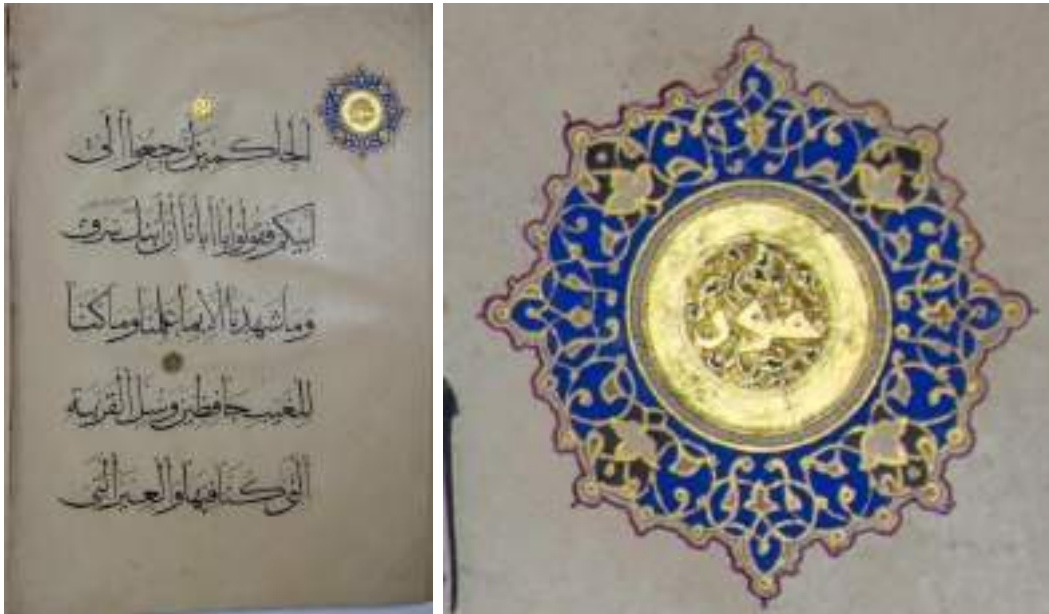 الحاكمين ارجعوا الى
ابيكم فقولوا يا ابانا ان ابنك سرق
وما شهدنا الا بما علمنا وما كنا
للغيب حافظين وسل القرية
التي كنا فيها والعير التي